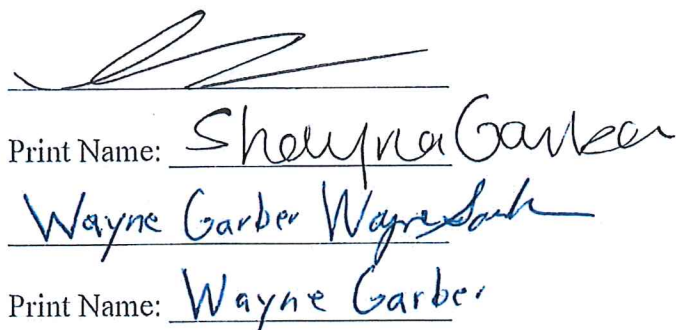 Print Name: Shayna Garber
Wayne Garber Wayne Garber
Print Name: Wayne Garber